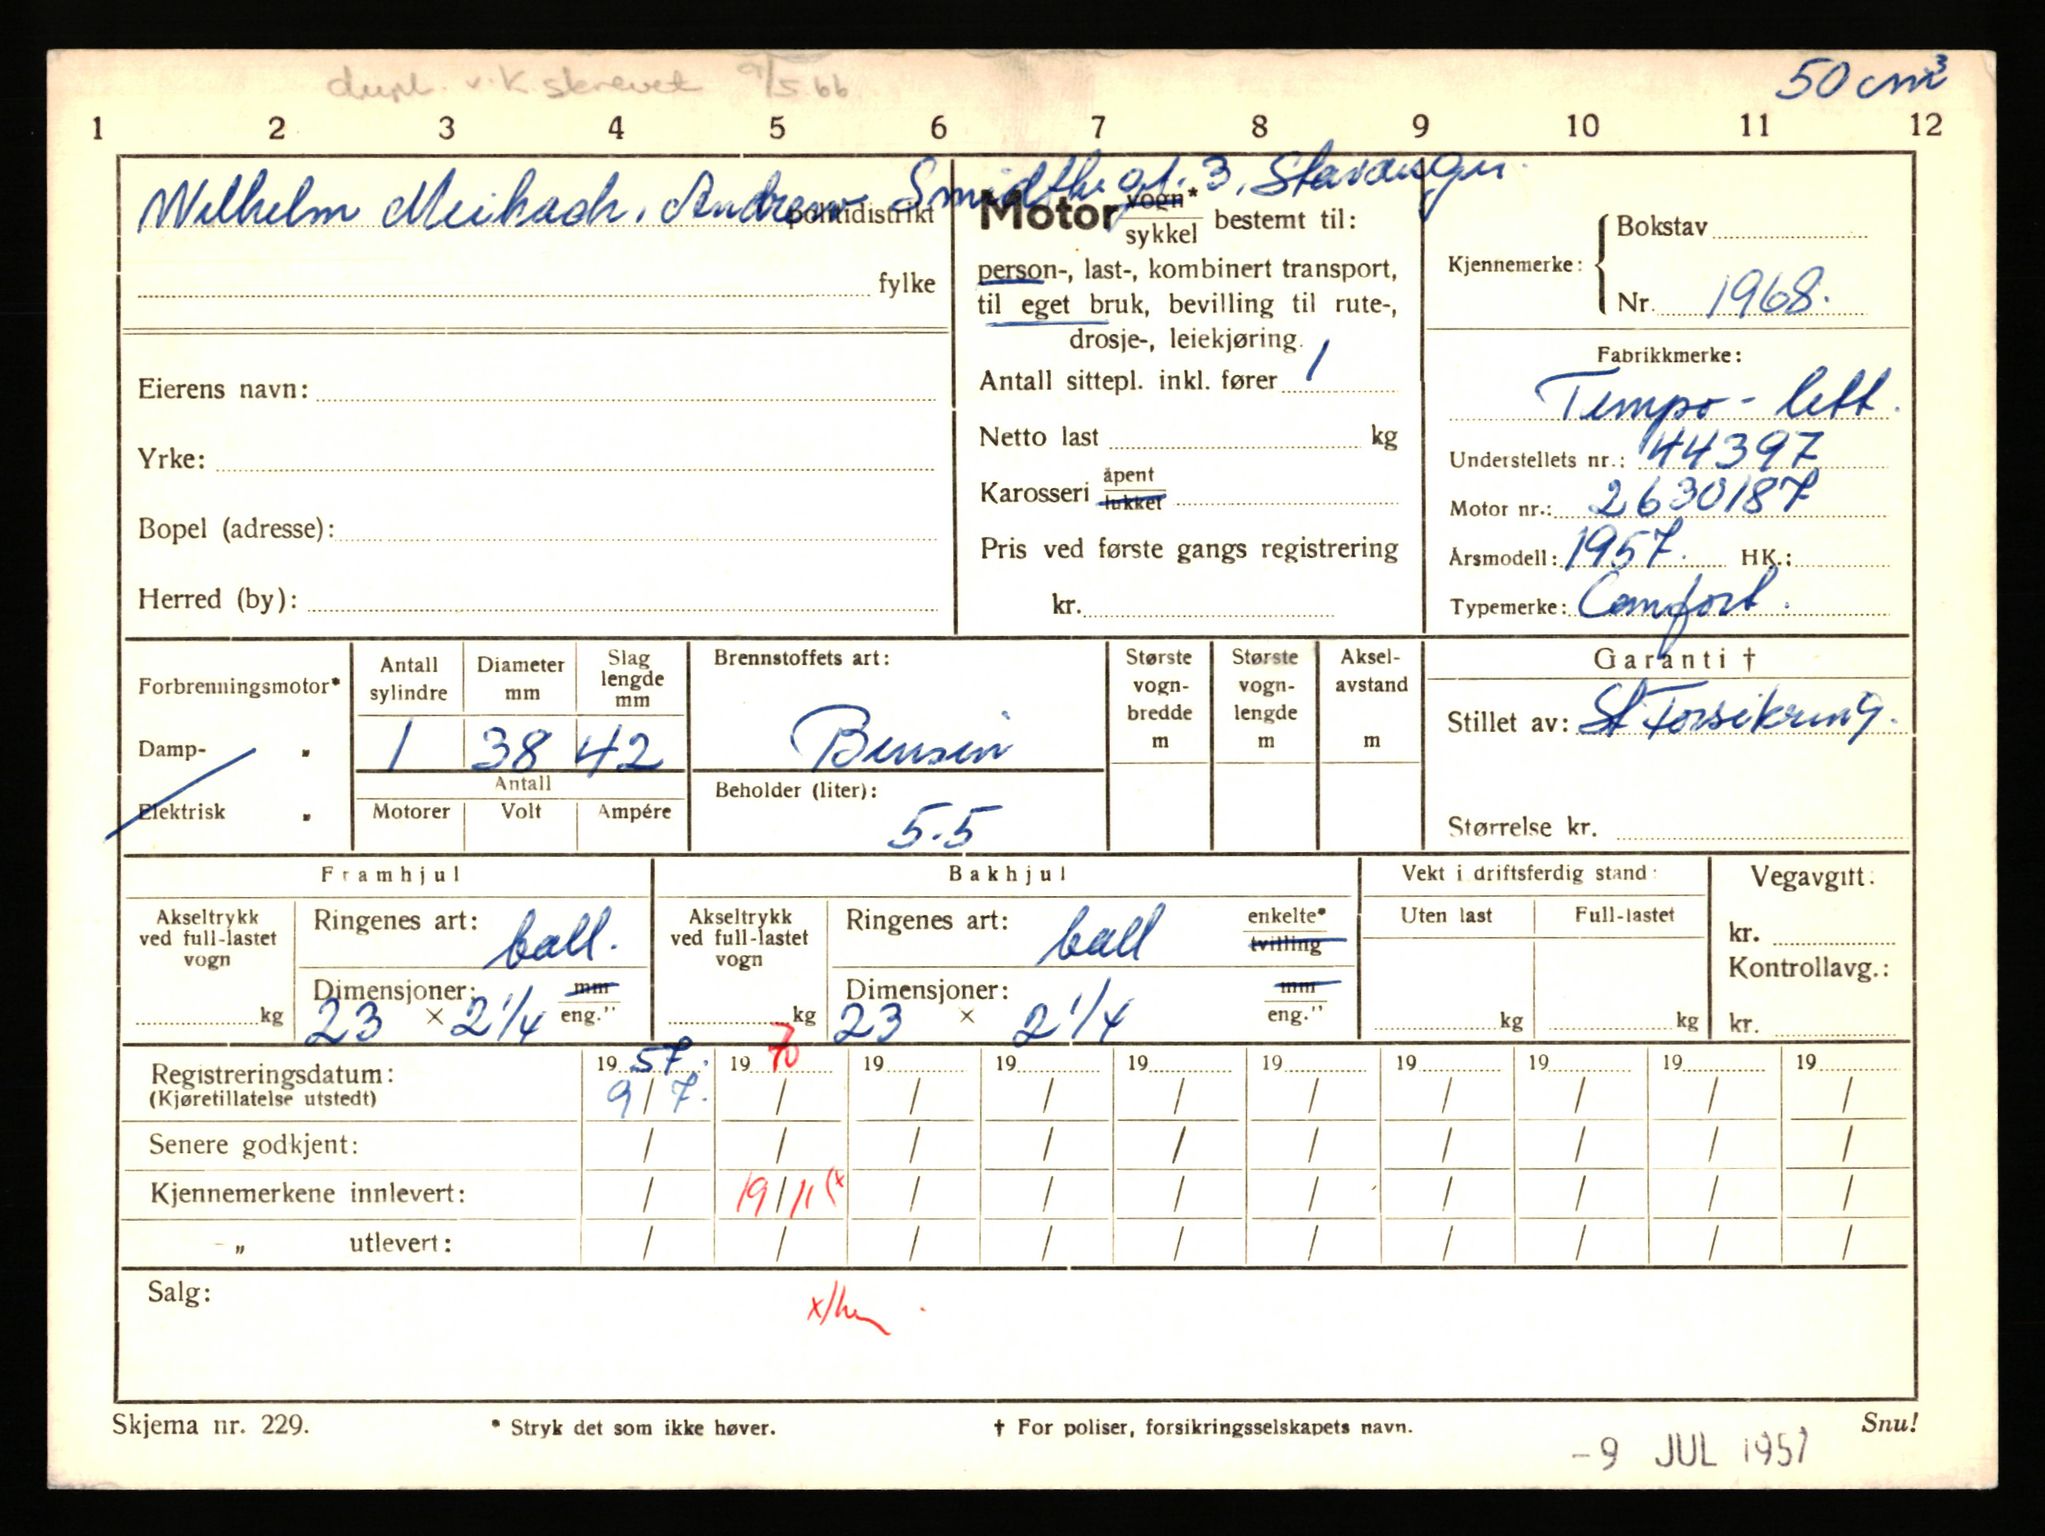 dupl. v.k. skrevet 9/5.66
50 cm³
1 2 3 4 5 6 7 8 9 10 11 12
Wilhelm Meibach, Andreas Smidthsgt. 3, Stavanger.
politidistrikt
fylke
Eierens navn:
Yrke:
Bopel (adresse):
Herred (by):
Motor vogn* sykkel bestemt til:
person-, last-, kombinert transport,
til eget bruk, bevilling til rute-,
drosje-, leiekjøring.
Antall sittepl. inkl. fører 1
Netto last kg
Karosseri åpent lukket
Pris ved første gangs registrering
kr.
Kjennemerke: Bokstav
Nr. 1968.
Fabrikkmerke:
Tempo - lett.
Understellets nr.: 44397
Motor nr.: 2630187
Årsmodell: 1957. HK.:
Typemerke: Comfort.
Forbrenningsmotor*
Damp- „
Elektrisk „
Antall sylindre Diameter mm Slaglengde mm
1 38 42
Antall
Motorer Volt Ampére
Brennstoffets art:
Bensin
Beholder (liter):
5.5
Største vogn-bredde m
Største vogn-lengde m
Aksel-avstand m
Garanti †
Stillet av: St Forsikring.
Størrelse kr.
Framhjul
Akseltrykk ved full-lastet vogn
kg
Ringenes art: ball.
Dimensjoner: mm
23 × 2 1/4 eng."
Bakhjul
Akseltrykk ved full-lastet vogn
kg
Ringenes art: ball enkelte* tvilling
Dimensjoner: mm
23 × 2 1/4 eng."
Vekt i driftsferdig stand:
Uten last Full-lastet
kg kg
Vegavgift:
kr.
Kontrollavg.:
kr.
Registreringsdatum: 19 57. 19 70 19 19 19 19 19 19 19 19
(Kjøretillatelse utstedt) 9/7. / / / / / / / / /
Senere godkjent: / / / / / / / / / /
Kjennemerkene innlevert: / 19/11 (x / / / / / / / /
„ utlevert: / / / / / / / / / /
Salg:
Skjema nr. 229. * Stryk det som ikke høver. † For poliser, forsikringsselskapets navn. Snu!
-9 JUL 1957